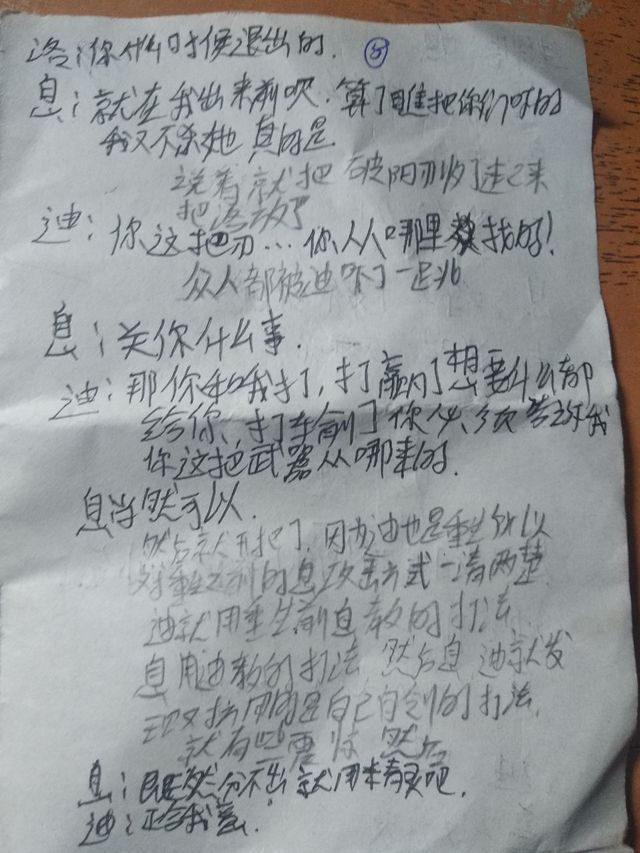 洛：你什么时侯退出的. ⑤
息：就在我出来前呗. 算了瞧把你们吓的
我又不杀她 真的是
说着就把破阳刃收了起来
把洛放了
迪：你这把刃…你从哪里找的!
众人都被迪吓了一跳
息：关你什么事.
迪：那你和我打,打赢了想要什么都
给你,打输了你必须告诉我
你这把武器从哪来的.
息当然可以.
然后就开打了,因为迪也是重生所以
对重生前的息攻击方式一清两楚
迪就用重生前息教的打法
息用迪教的打法 然后息 迪就发
现对方用的是自己自创的打法.
就有些震惊 然后
息：既然分不出就用来青灵吧.
迪：正合我意.